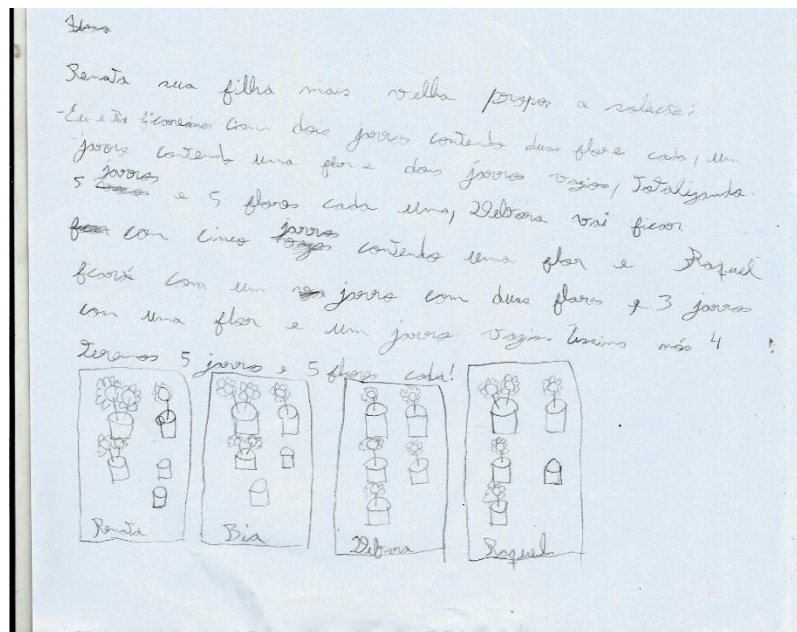 Renata sua filha mais velha propos a solução:
-Eu e Bia ficaremos com dois jarros contendo duas flores cada, um
jarro contendo uma flor e dois jarros vazios, totalizando
5 jarros e 5 flores cada uma, Debora vai ficar
com cinco jarros contendo uma flor e Raquel
ficará com um jarro com duas flores e 3 jarros
com uma flor e um jarro vazio. Assim nós 4
teremos 5 jarros e 5 flores cada!
Renata Bia Debora Raquel